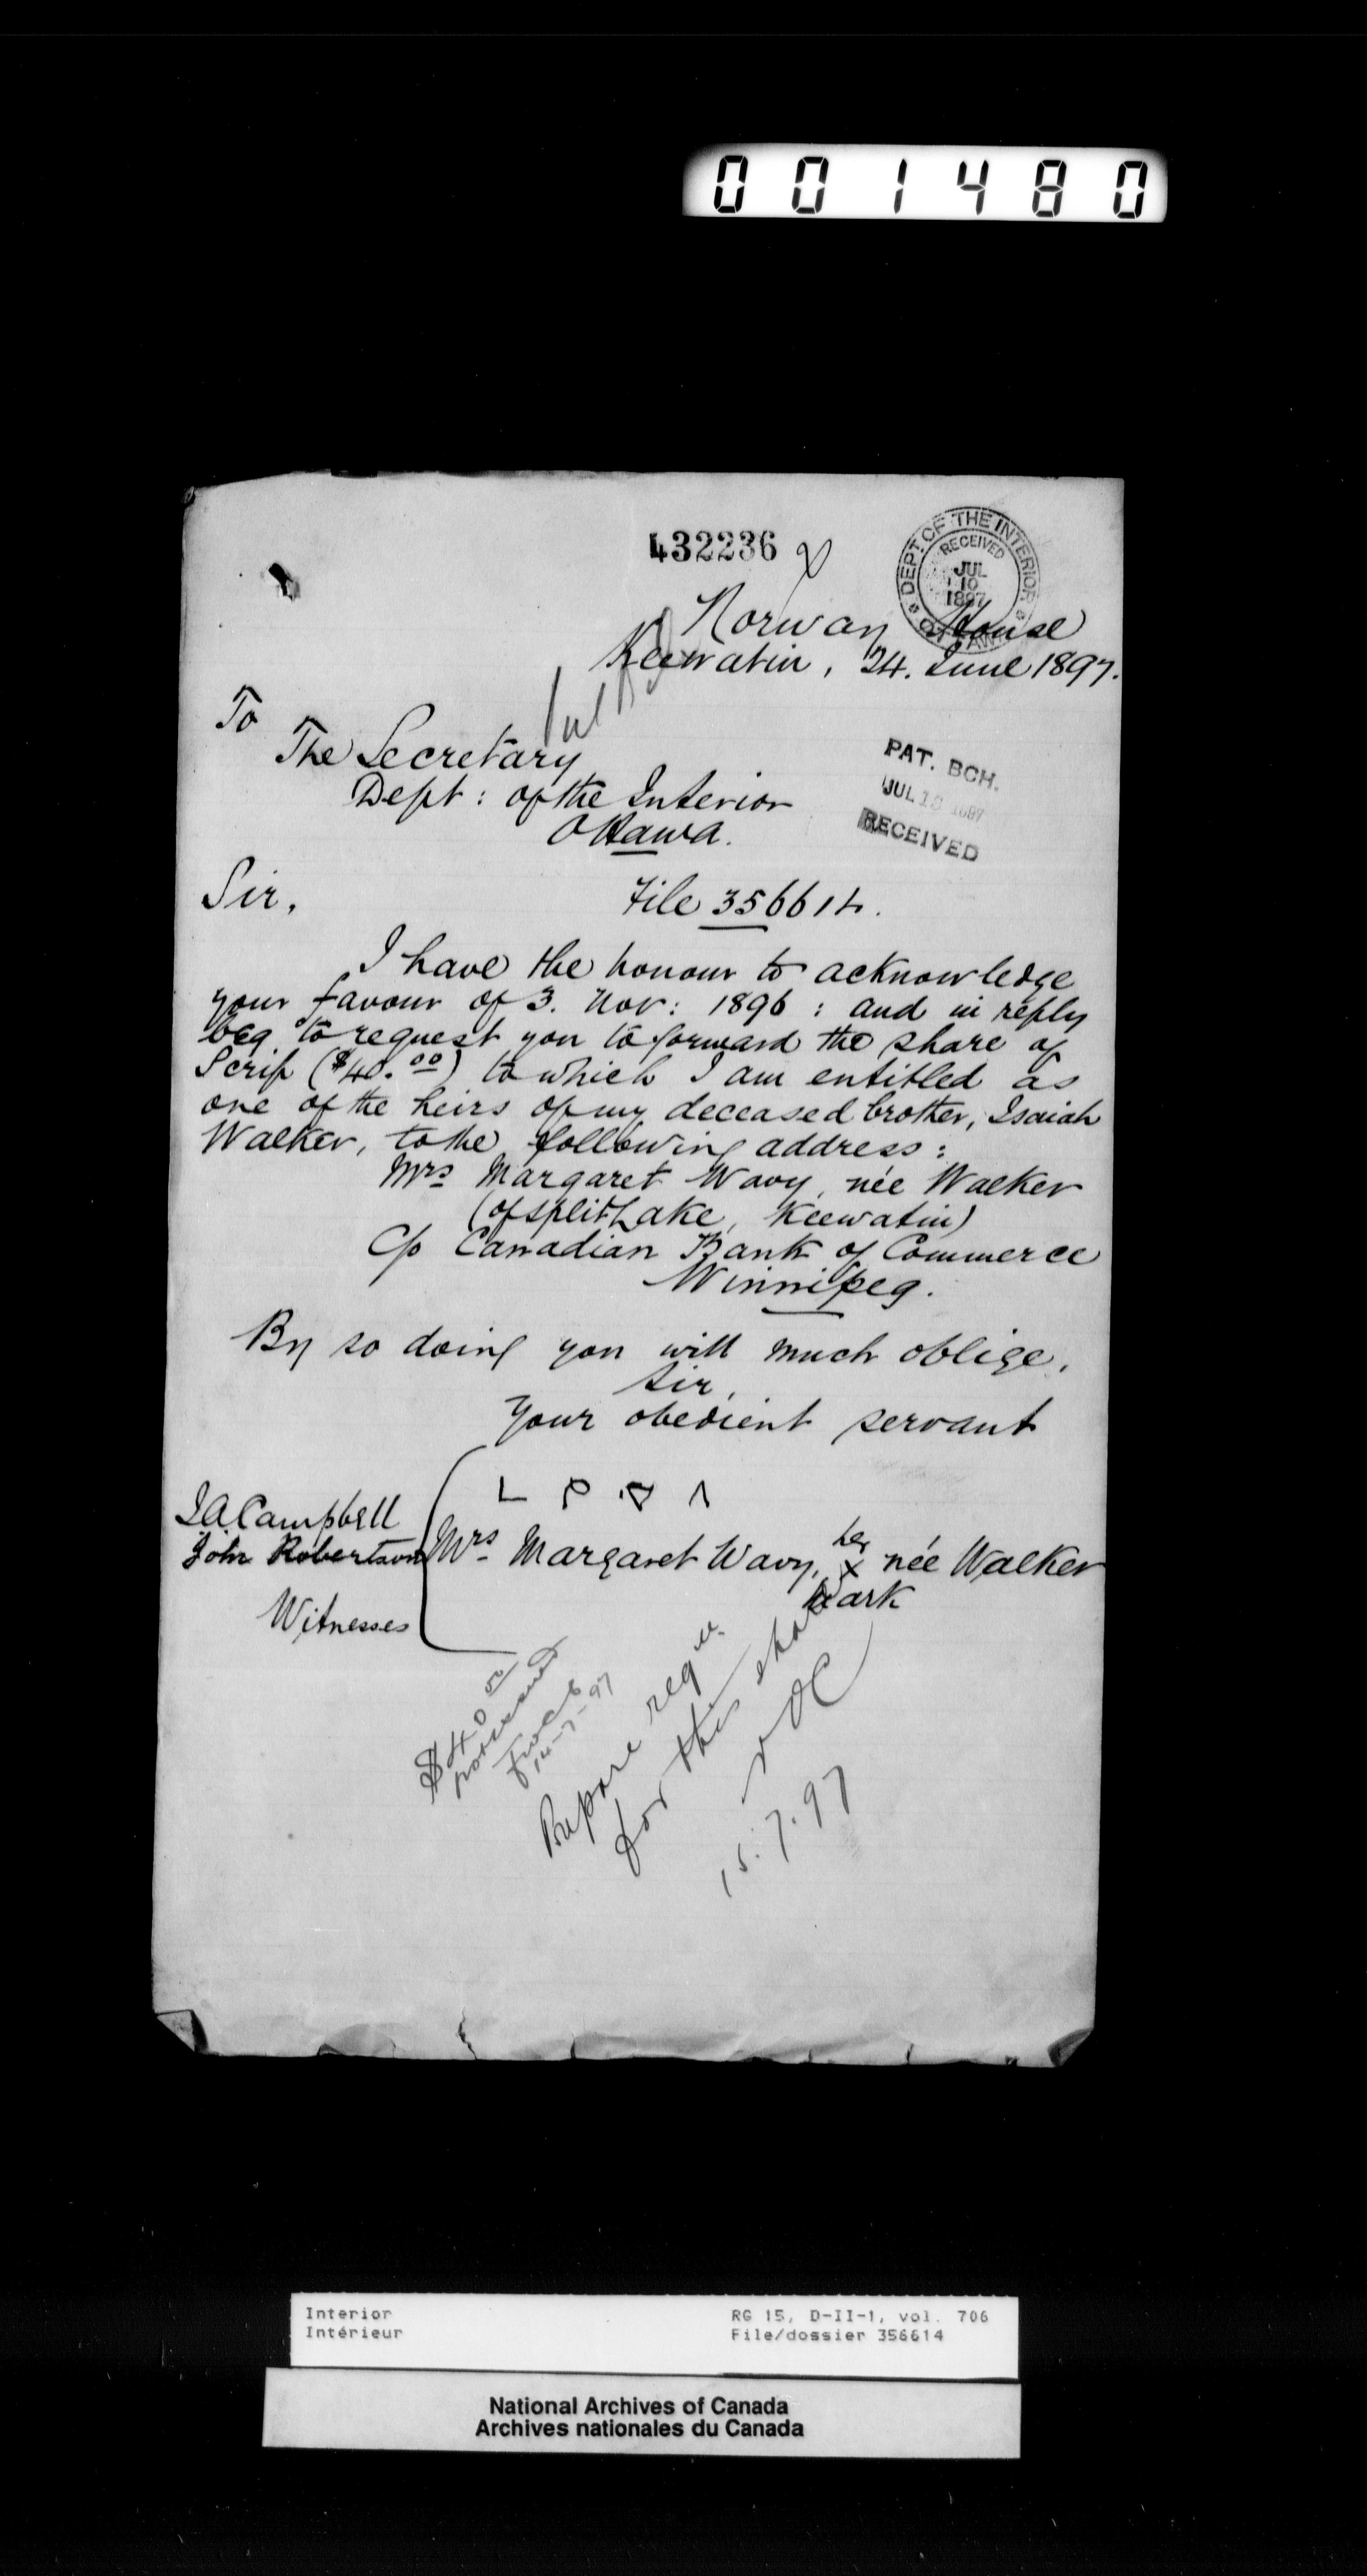 001480
432236
DEPT. OF THE INTERIOR
RECEIVED
JUL
10
1897
OTTAWA
Norway House
Keewatin, 24. June 1897.
To
The Secretary
Dept: of the Interior
Ottawa.
PAT. BCH.
JUL 1897
RECEIVED
Sir,
File 356614.
I have the honour to acknowledge
your favour of 3. Nov: 1896: and in reply
beg to request you to forward the share of
Scrip ($40.00) to which I am entitled as
one of the heirs of my deceased brother, Isaiah
Walker, to the following address:
Mrs Margaret Wavy, née Walker
(of Split Lake, Keewatin)
C/o Canadian Bank of Commerce
Winnipeg.
By so doing you will much oblige,
Sir,
Your obedient servant
ᒪ ᑭ ᐧᐊ ᐱ
J.A. Campbell
John Robertson
Witnesses
Mrs Margaret Wavy, her x mark née Walker
$40
14-7-97
Prepare reqn
for this share
15.7.97
Interior
Intérieur
RG 15, D-II-1, vol. 706
File/dossier 356614
National Archives of Canada
Archives nationales du Canada